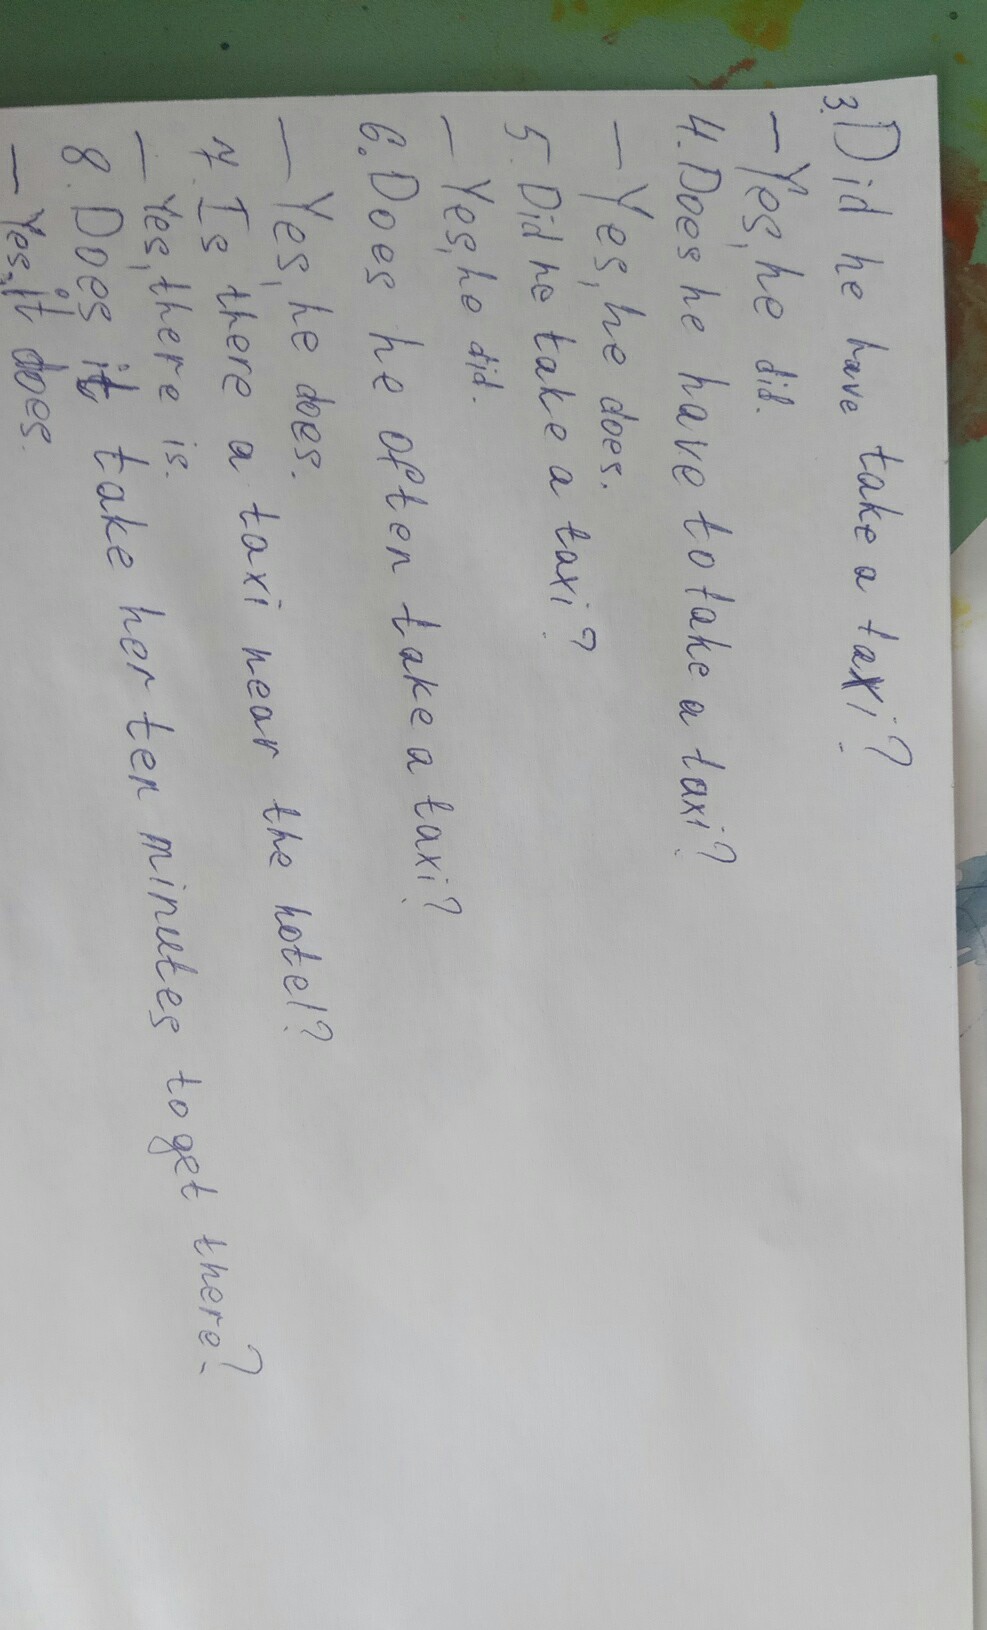 3. Did he have take a taxi?
— Yes, he did.
4. Does he have to take a taxi?
— Yes, he does.
5. Did he take a taxi?
— Yes, he did.
6. Does he often take a taxi?
— Yes, he does.
7. Is there a taxi near the hotel?
— Yes, there is.
8. Does it take her ten minutes to get there?
— Yes, it does.